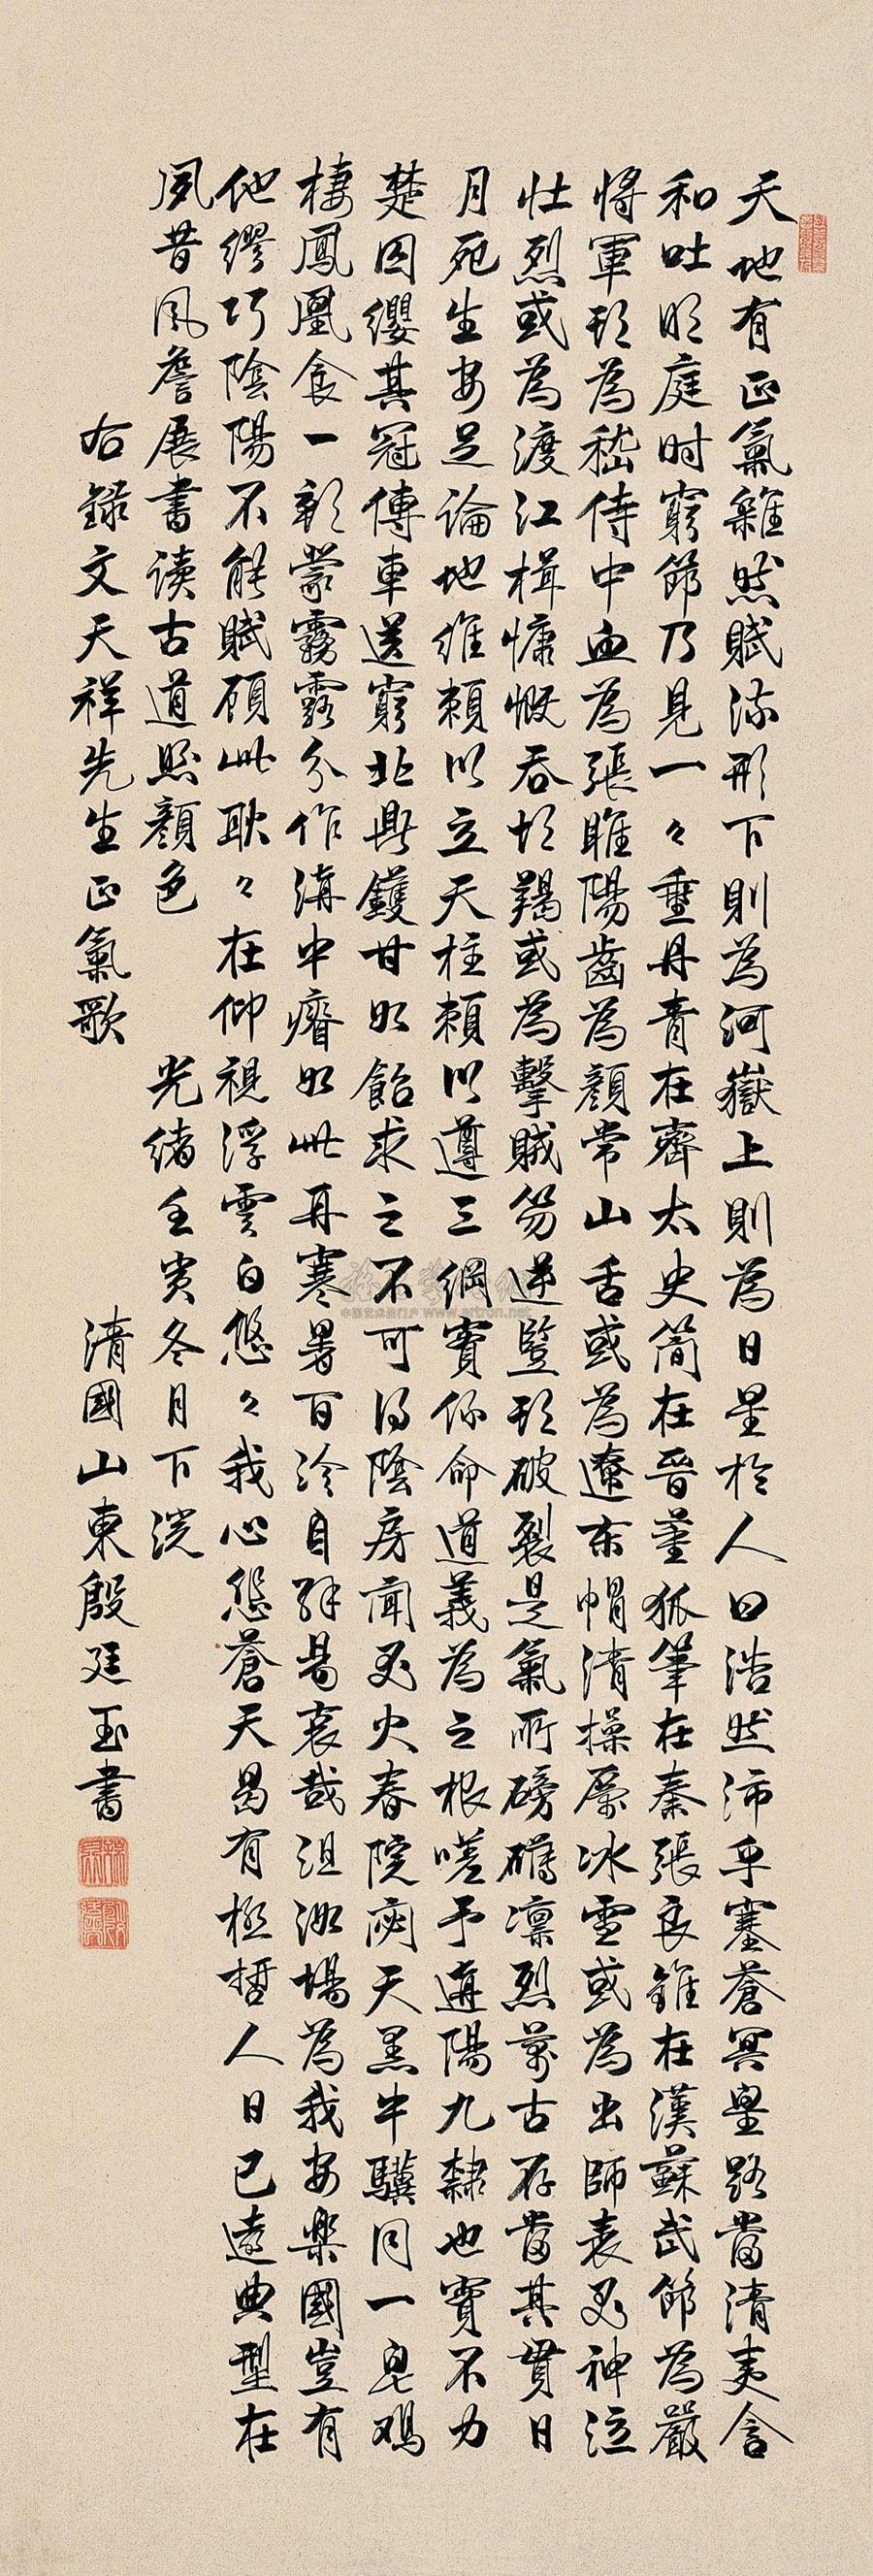 天地有正氣雜然賦流形下則為河嶽上則為日星於人曰浩然沛乎塞蒼冥皇路當清夷含
和吐明庭时窮節乃見一々垂丹青在齊太史简在晉董狐筆在秦張良錐在漢蘇武節為嚴
將軍頭為嵇侍中血為張睢陽齒為顏常山舌或為遼東帽清操厲冰雪或為出師表鬼神泣
壯烈或為渡江楫慷慨吞胡羯或為擊賊笏逆豎頭破裂是氣所磅礴凜烈萬古存當其貫日
月死生安足論地維賴以立天柱賴以遵三綱實係命道義為之根嗟予遘陽九隸也實不力
楚囚纓其冠傳車送窮北鼎鑊甘如飴求之不可得陰房聞鬼火春院閟天黑牛驥同一皂鸡
棲鳳凰食一朝蒙霧露分作溝中瘠如此再寒暑百沴自辟易哀哉沮洳場為我安樂國豈有
他繆巧陰陽不能賊顧此耿々在仰視浮雲白悠々我心悲蒼天曷有極哲人日已遠典型在
夙昔風簷展書读古道照顏色 光緒壬寅冬月下浣
右錄文天祥先生正氣歌 清國山東殷廷玉書
中国艺术品门户 www.artron.net